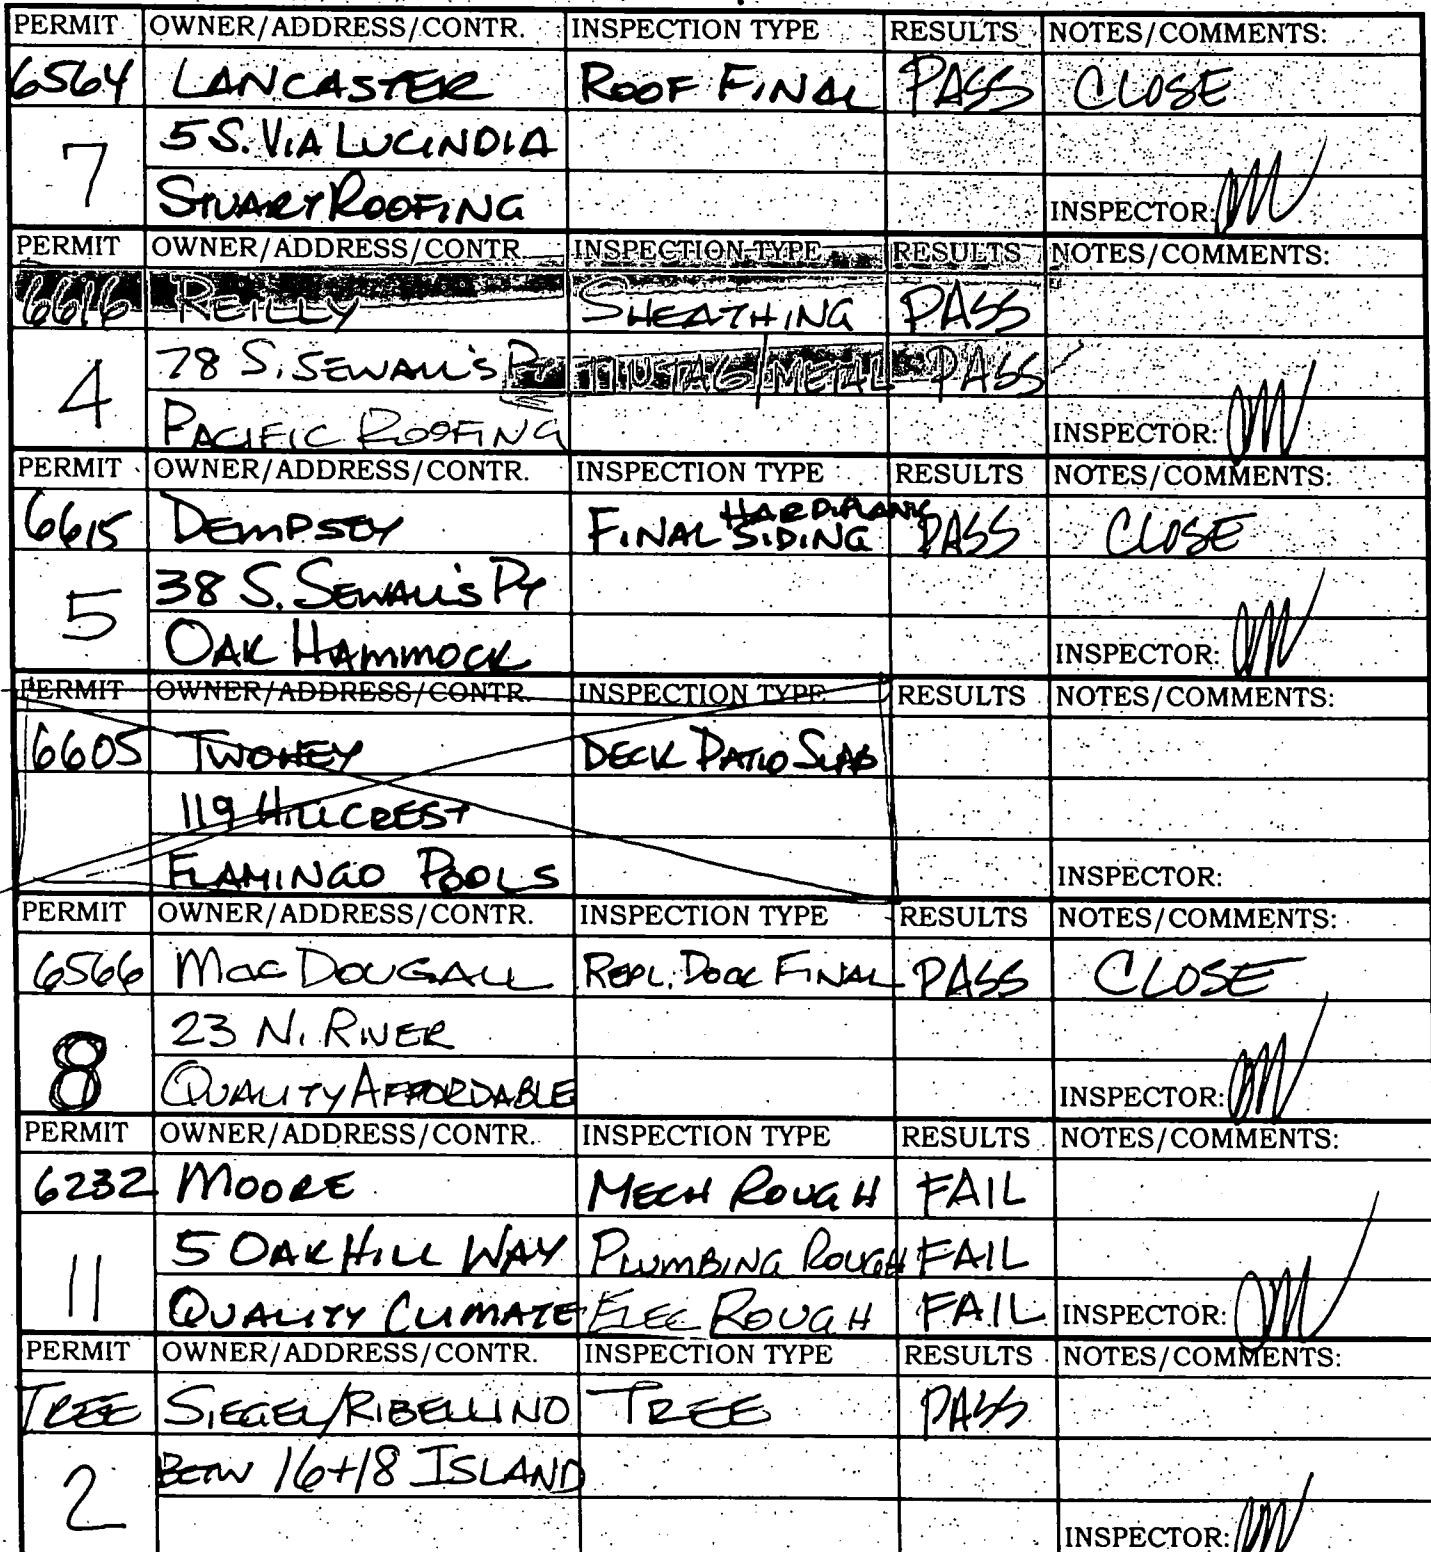 PERMIT OWNER/ADDRESS/CONTR. INSPECTION TYPE RESULTS NOTES/COMMENTS:
6564 LANCASTER ROOF FINAL PASS CLOSE
7 5 S. VIA LUCINDIA
STUART ROOFING INSPECTOR:
PERMIT OWNER/ADDRESS/CONTR. INSPECTION TYPE RESULTS NOTES/COMMENTS:
6616 REILLY SHEATHING PASS
4 78 S. SEWALL'S PT TINTAG/METAL PASS
PACIFIC ROOFING INSPECTOR:
PERMIT OWNER/ADDRESS/CONTR. INSPECTION TYPE RESULTS NOTES/COMMENTS:
6615 DEMPSEY FINAL HARDIPLANK SIDING PASS CLOSE
5 38 S. SEWALL'S PT
OAK HAMMOCK INSPECTOR:
PERMIT OWNER/ADDRESS/CONTR. INSPECTION TYPE RESULTS NOTES/COMMENTS:
6605 TWOHEY DECK PATIO SLAB
119 HILLCREST
FLAMINGO POOLS INSPECTOR:
PERMIT OWNER/ADDRESS/CONTR. INSPECTION TYPE RESULTS NOTES/COMMENTS:
6566 MACDOUGALL REPL. DOCK FINAL PASS CLOSE
8 23 N. RIVER
QUALITY AFFORDABLE INSPECTOR:
PERMIT OWNER/ADDRESS/CONTR. INSPECTION TYPE RESULTS NOTES/COMMENTS:
6232 MOORE MECH ROUGH FAIL
11 5 OAK HILL WAY PLUMBING ROUGH FAIL
QUALITY CLIMATE ELEC ROUGH FAIL INSPECTOR:
PERMIT OWNER/ADDRESS/CONTR. INSPECTION TYPE RESULTS NOTES/COMMENTS:
TREE SIEGEL/RIBELLINO TREE PASS
2 BETW 16+18 ISLAND
INSPECTOR: